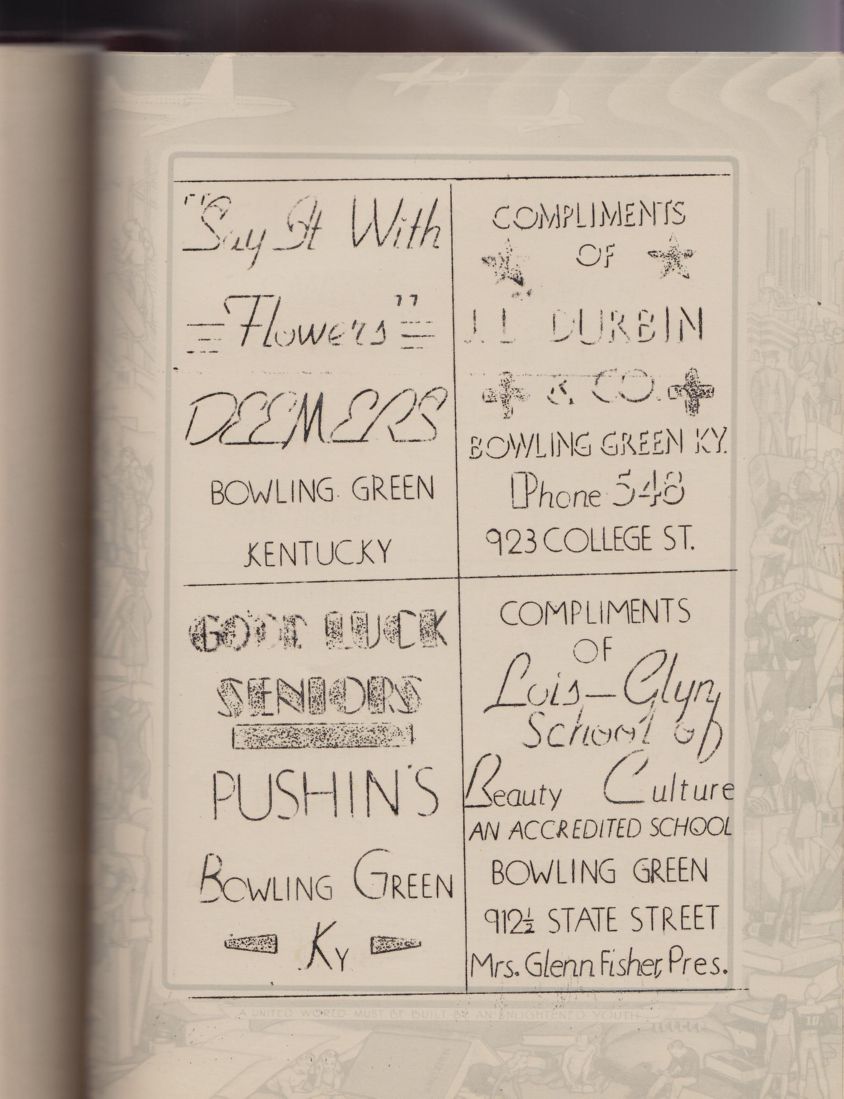 "Say It With
Flowers"
DEEMERS
BOWLING GREEN
KENTUCKY
COMPLIMENTS
OF
J.L. DURBIN
& CO.
BOWLING GREEN KY.
Phone 548
923 COLLEGE ST.
GOOD LUCK
SENIORS
PUSHIN'S
BOWLING GREEN
KY
COMPLIMENTS
OF
Lois-Glyn
School of
Beauty Culture
AN ACCREDITED SCHOOL
BOWLING GREEN
912½ STATE STREET
Mrs. Glenn Fisher, Pres.
A UNITED WORLD MUST BE BUILT BY AN ENLIGHTENED YOUTH